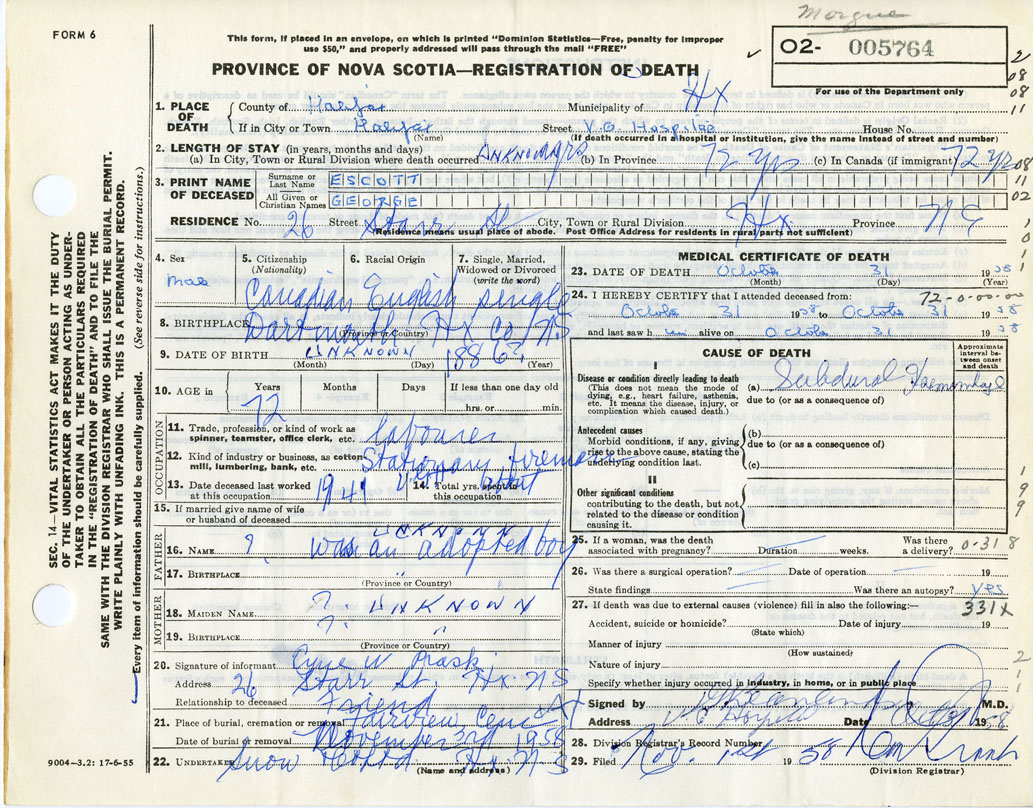 Morgue
FORM 6
This form, if placed in an envelope, on which is printed "Dominion Statistics—Free, penalty for improper
use $50," and properly addressed will pass through the mail "FREE"
✓ O2- 005764
PROVINCE OF NOVA SCOTIA—REGISTRATION OF DEATH
For use of the Department only
2
08
08
11
1. PLACE OF DEATH { County of Halifax Municipality of Hx
If in City or Town Halifax Street V.G. Hospital House No.
(Name) (If death occurred in a hospital or institution, give the name instead of street and number)
2. LENGTH OF STAY (in years, months and days)
(a) In City, Town or Rural Division where death occurred UNKNOWN yrs (b) In Province 72 yrs (c) In Canada (if immigrant) 72 yrs
08
11
02
3. PRINT NAME OF DECEASED { Surname or Last Name ESCOTT
All Given or Christian Names GEORGE
RESIDENCE No. 26 Street Starr St City, Town or Rural Division Hx. Province N S
(Residence means usual place of abode. Post Office Address for residents in rural parts not sufficient)
4. Sex
male
5. Citizenship
(Nationality)
Canadian
6. Racial Origin
English
7. Single, Married,
Widowed or Divorced
(write the word)
single
8. BIRTHPLACE Dartmouth Hx Co NS
(Province or Country)
9. DATE OF BIRTH UNKNOWN 1886
(Month) (Day) (Year)
10. AGE in { Years Months Days If less than one day old
72 hrs. or min.
OCCUPATION
11. Trade, profession, or kind of work as
spinner, teamster, office clerk, etc. labourer
12. Kind of industry or business, as cotton
mill, lumbering, bank, etc. Stationary fireman
13. Date deceased last worked
at this occupation 1941
14. Total yrs. spent in
this occupation
15. If married give name of wife
or husband of deceased
FATHER
16. NAME ? UNKNOWN was an adopted boy
17. BIRTHPLACE
(Province or Country)
MOTHER
18. MAIDEN NAME ? UNKNOWN
19. BIRTHPLACE ? "
(Province or Country)
20. Signature of informant
Address 26 Starr St. Hx NS
Relationship to deceased Friend
21. Place of burial, cremation or removal Fairview Cem
Date of burial or removal November 3rd 1958
22. UNDERTAKER Snow Hx NS
(Name and address)
9004—3.2: 17-6-55
SEC. 14—VITAL STATISTICS ACT MAKES IT THE DUTY
OF THE UNDERTAKER OR PERSON ACTING AS UNDER-
TAKER TO OBTAIN ALL THE PARTICULARS REQUIRED
IN THE "REGISTRATION OF DEATH" AND TO FILE THE
SAME WITH THE DIVISION REGISTRAR WHO SHALL ISSUE THE BURIAL PERMIT.
WRITE PLAINLY WITH UNFADING INK. THIS IS A PERMANENT RECORD.
Every item of information should be carefully supplied. (See reverse side for instructions.)
MEDICAL CERTIFICATE OF DEATH
23. DATE OF DEATH October 31 1958
(Month) (Day) (Year)
24. I HEREBY CERTIFY that I attended deceased from: 72-0-00-00
October 31 1958 to October 31 1958
and last saw him alive on October 31 1958
CAUSE OF DEATH
Approximate
interval be-
tween onset
and death
I
Disease or condition directly leading to death
(This does not mean the mode of
dying, e.g., heart failure, asthenia,
etc. It means the disease, injury, or
complication which caused death.)
(a) Subdural Haemorrhage
due to (or as a consequence of)
Antecedent causes
Morbid conditions, if any, giving
rise to the above cause, stating the
underlying condition last.
(b)
due to (or as a consequence of)
(c)
II
Other significant conditions
contributing to the death, but not
related to the disease or condition
causing it.
1
9
9
25. If a woman, was the death
associated with pregnancy? Duration weeks.
Was there
a delivery? 0-318
26. Was there a surgical operation? Date of operation 19
State findings Was there an autopsy? yes
27. If death was due to external causes (violence) fill in also the following:— 331X
Accident, suicide or homicide? Date of injury 19
(State which)
Manner of injury
(How sustained)
Nature of injury
Specify whether injury occurred in industry, in home, or in public place
2
1
1
Signed by M.D.
Address V G Hospital Date 1958
28. Division Registrar's Record Number
29. Filed Nov. 1st 1958
(Division Registrar)